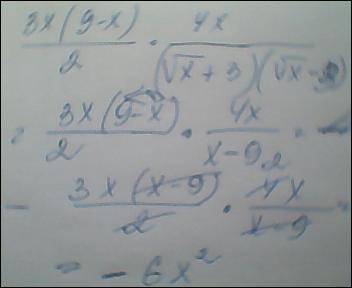 3x(9-x)/2 · 4x/((√x+3)(√x-3))
= 3x(9-x)/2 · 4x/(x-9) =
- 3x(x-9)/2 · 4x/(x-9) =
= -6x²